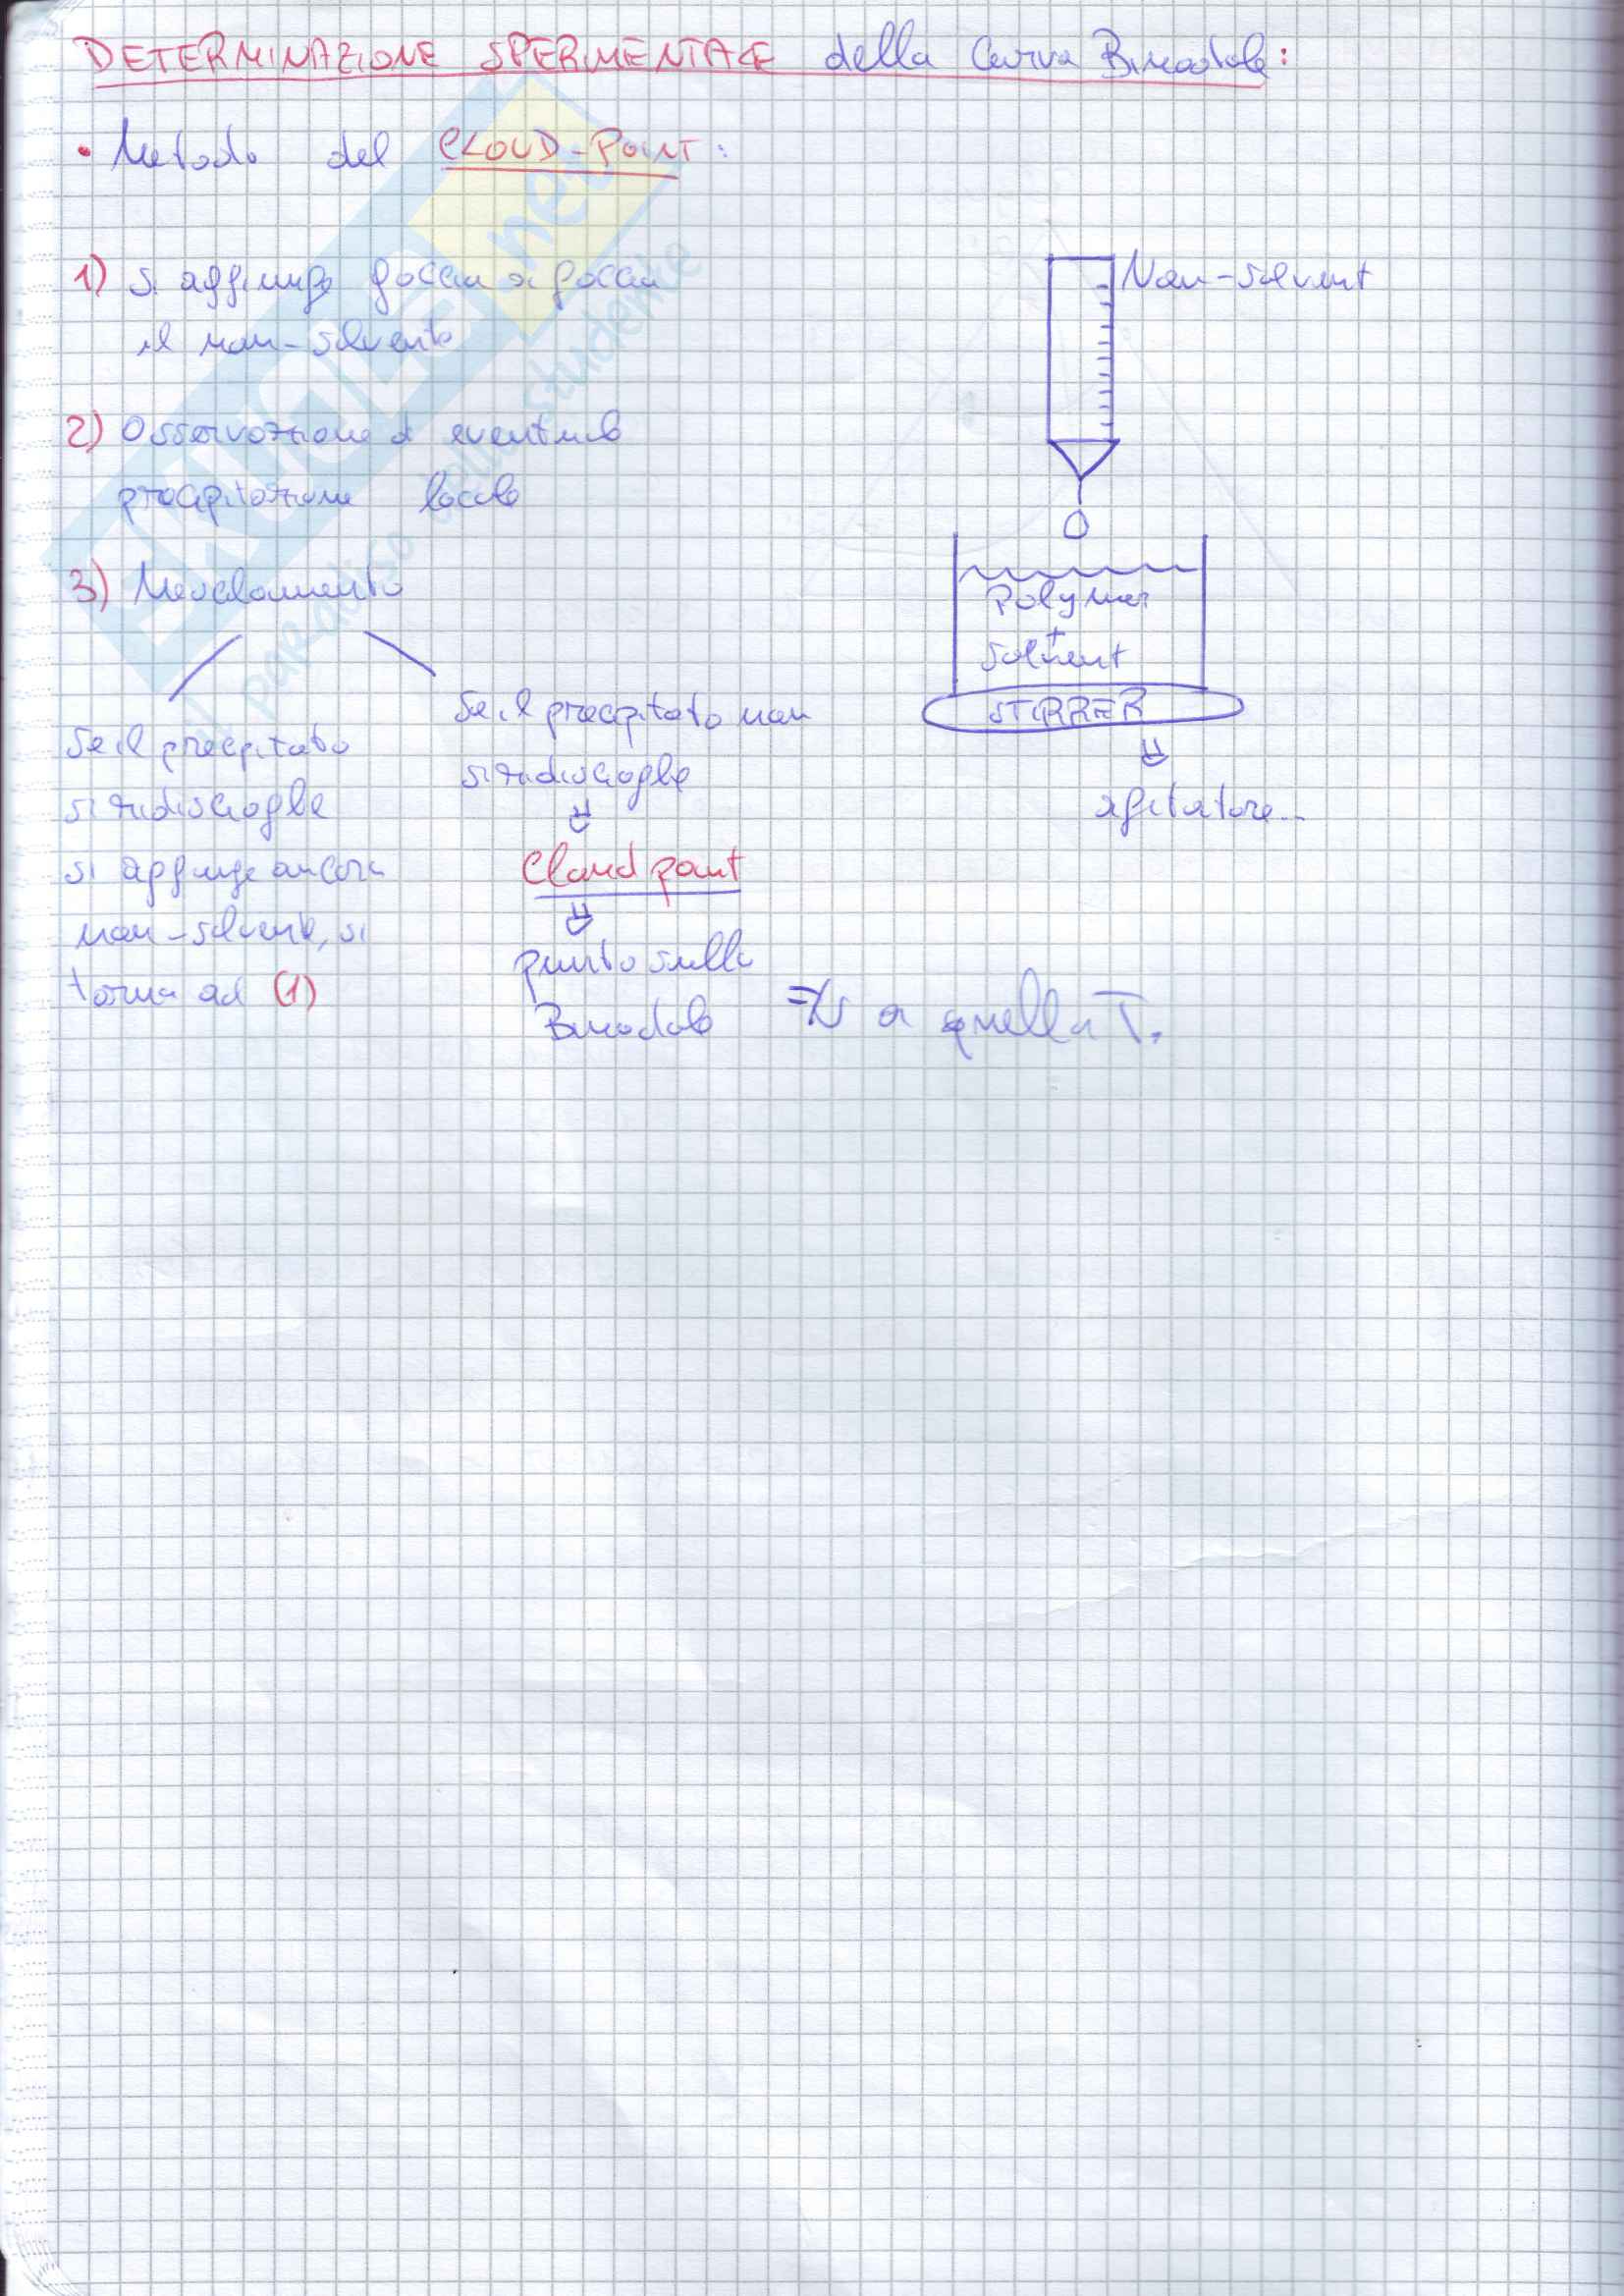 DETERMINAZIONE SPERIMENTALE della Curva Binodale:
• Metodo del CLOUD-POINT:
1) Si aggiunge goccia a goccia
il non-solvente
2) Osservazione di eventuale
precipitazione locale
3) Mescolamento
Se il precipitato
si ridiscioglie
si aggiunge ancora
non-solvente, si
torna ad (1)
Se il precipitato non
si ridiscioglie
Cloud point
punto sulla
Binodale => a quella T.
Non-solvent
Polymer
+
Solvent
STIRRER
agitatore...
SKUOLA.net
paradiso dello studente